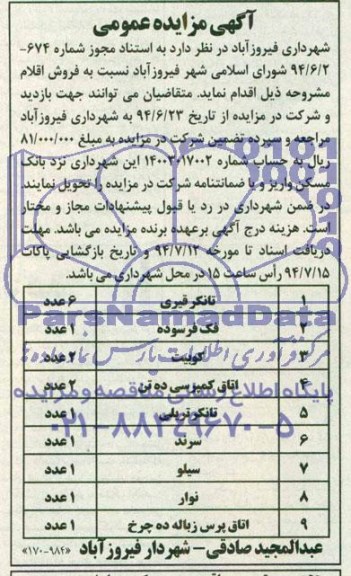 آگهی مزایده عمومی
شهرداری فیروزآباد در نظر دارد به استناد مجوز شماره ۶۷۴-
۹۴/۶/۲ شورای اسلامی شهر فیروزآباد نسبت به فروش اقلام
مشروحه ذیل اقدام نماید. متقاضیان می توانند جهت بازدید
و شرکت در مزایده از تاریخ ۹۴/۶/۲۳ به شهرداری فیروزآباد
مراجعه و سپرده تضمین شرکت در مزایده به مبلغ ۸۱/۰۰۰/۰۰۰
ریال به حساب شماره ۱۴۰۰۳۰۱۷۰۰۲ این شهرداری نزد بانک
مسکن واریز و یا ضمانتنامه شرکت در مزایده را تحویل نمایند.
در ضمن شهرداری در رد یا قبول پیشنهادات مجاز و مختار
است. هزینه درج آگهی برعهده برنده مزایده می باشد. مهلت
دریافت اسناد تا مورخه ۹۴/۷/۱۲ و تاریخ بازگشایی پاکات
۹۴/۷/۱۵ رأس ساعت ۱۵ در محل شهرداری می باشد.
۱ تانکر قیری ۶ عدد
ParsNamadData
۲ فک فرسوده ۱ عدد
۳ کوبیت ۲ عدد
مرکز فرآوری اطلاعات پارس نماد داده ها
۴ اتاق کمپرسی ده تن ۲ عدد
پایگاه اطلاع رسانی مناقصه و مزایده
۵ تانکر تریلی ۱ عدد
۰۲۱-۸۸۳۴۹۶۷۰-۵
۶ سرند ۱ عدد
۷ سیلو ۱ عدد
۸ نوار ۱ عدد
۹ اتاق پرس زباله ده چرخ ۱ عدد
عبدالمجید صادقی - شهردار فیروزآباد «۹۸۴-۱۷۰»